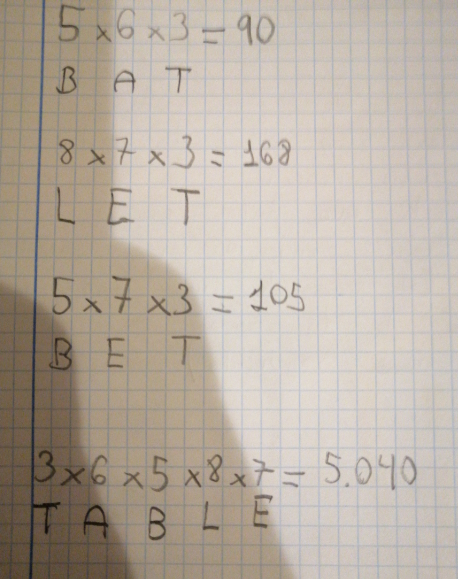 5 × 6 × 3 = 90
B A T
8 × 7 × 3 = 168
L E T
5 × 7 × 3 = 105
B E T
3 × 6 × 5 × 8 × 7 = 5.040
T A B L E